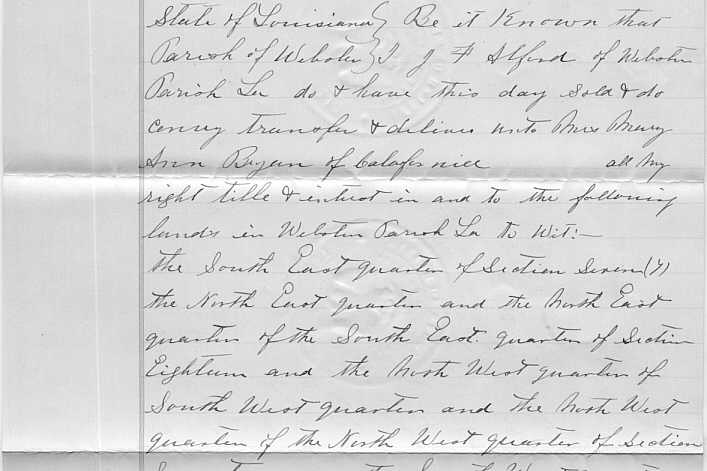 State of Louisiana } Be it Known that
Parish of Webster } I J F Alford of Webster
Parish La do & have this day sold & do
convey transfer & deliver unto Mrs Mary
Ann Bryan of all my
right title & intrest in and to the following
lands in Webster Parish La to wit:—
the South East quarter of Section Seven (7)
the North East quarter and the North East
quarter of the South East. quarter of Section
Eighteen and the North West quarter of
South West quarter and the North West
quarter of the North West quarter of Section